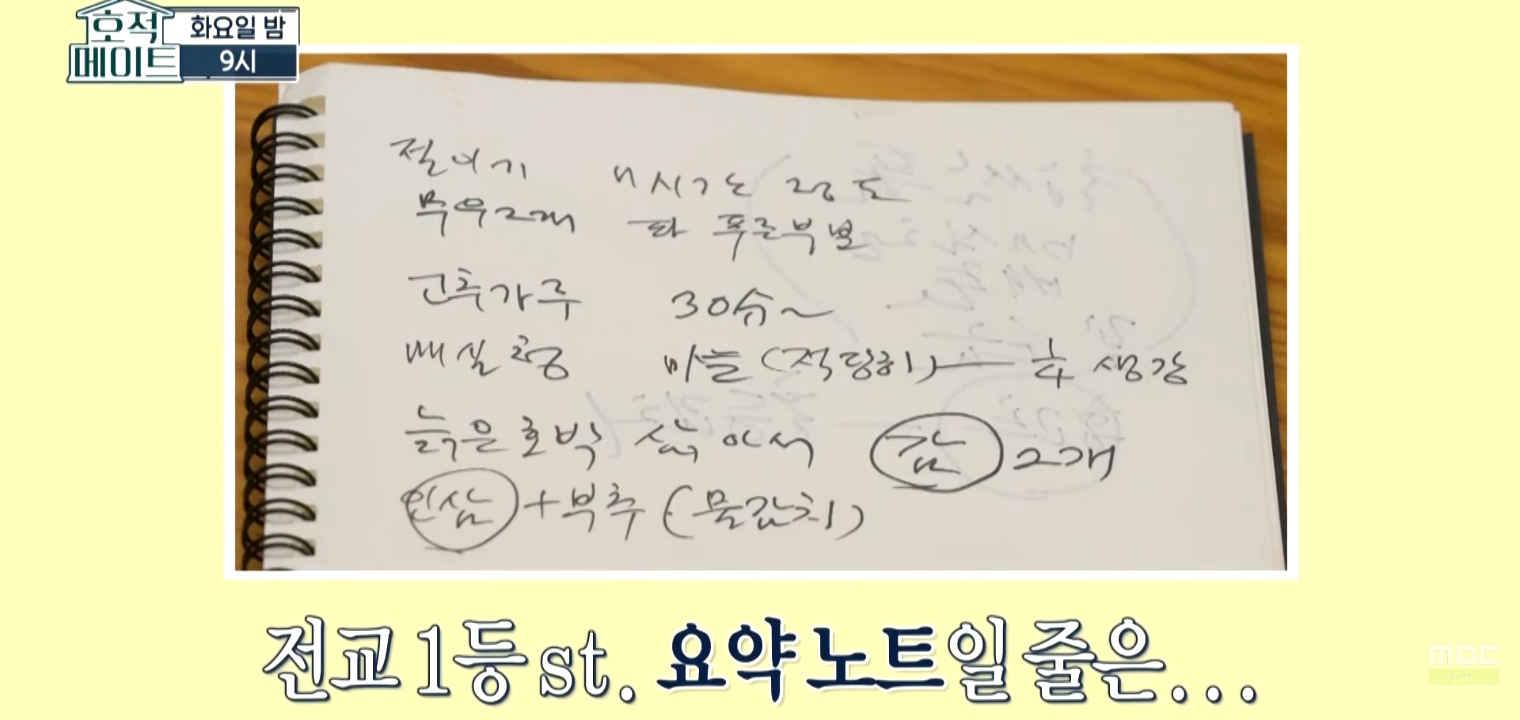 호적메이트
화요일 밤
9시
절이기 4시간 정도
무우2개 파 푸른부분
고추가루 30슈~
매실청 마늘(적당히) — 1/4 생강
늙은호박 삶아서 감 2개
인삼 + 부추 (물김치)
전교 1등 st. 요약 노트일 줄은...
MBC